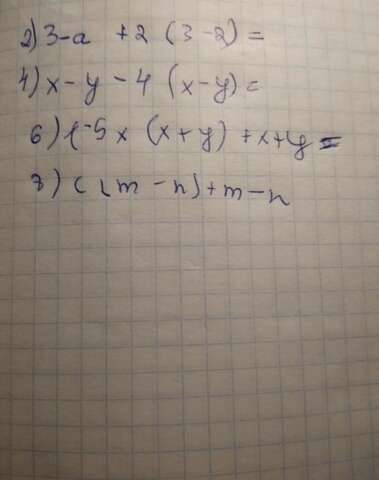 2) 3-a +2 (3-2) =
4) x-y-4 (x-y) =
6) (-5x (x+y) +x+y =
7) c(m-n)+m-n